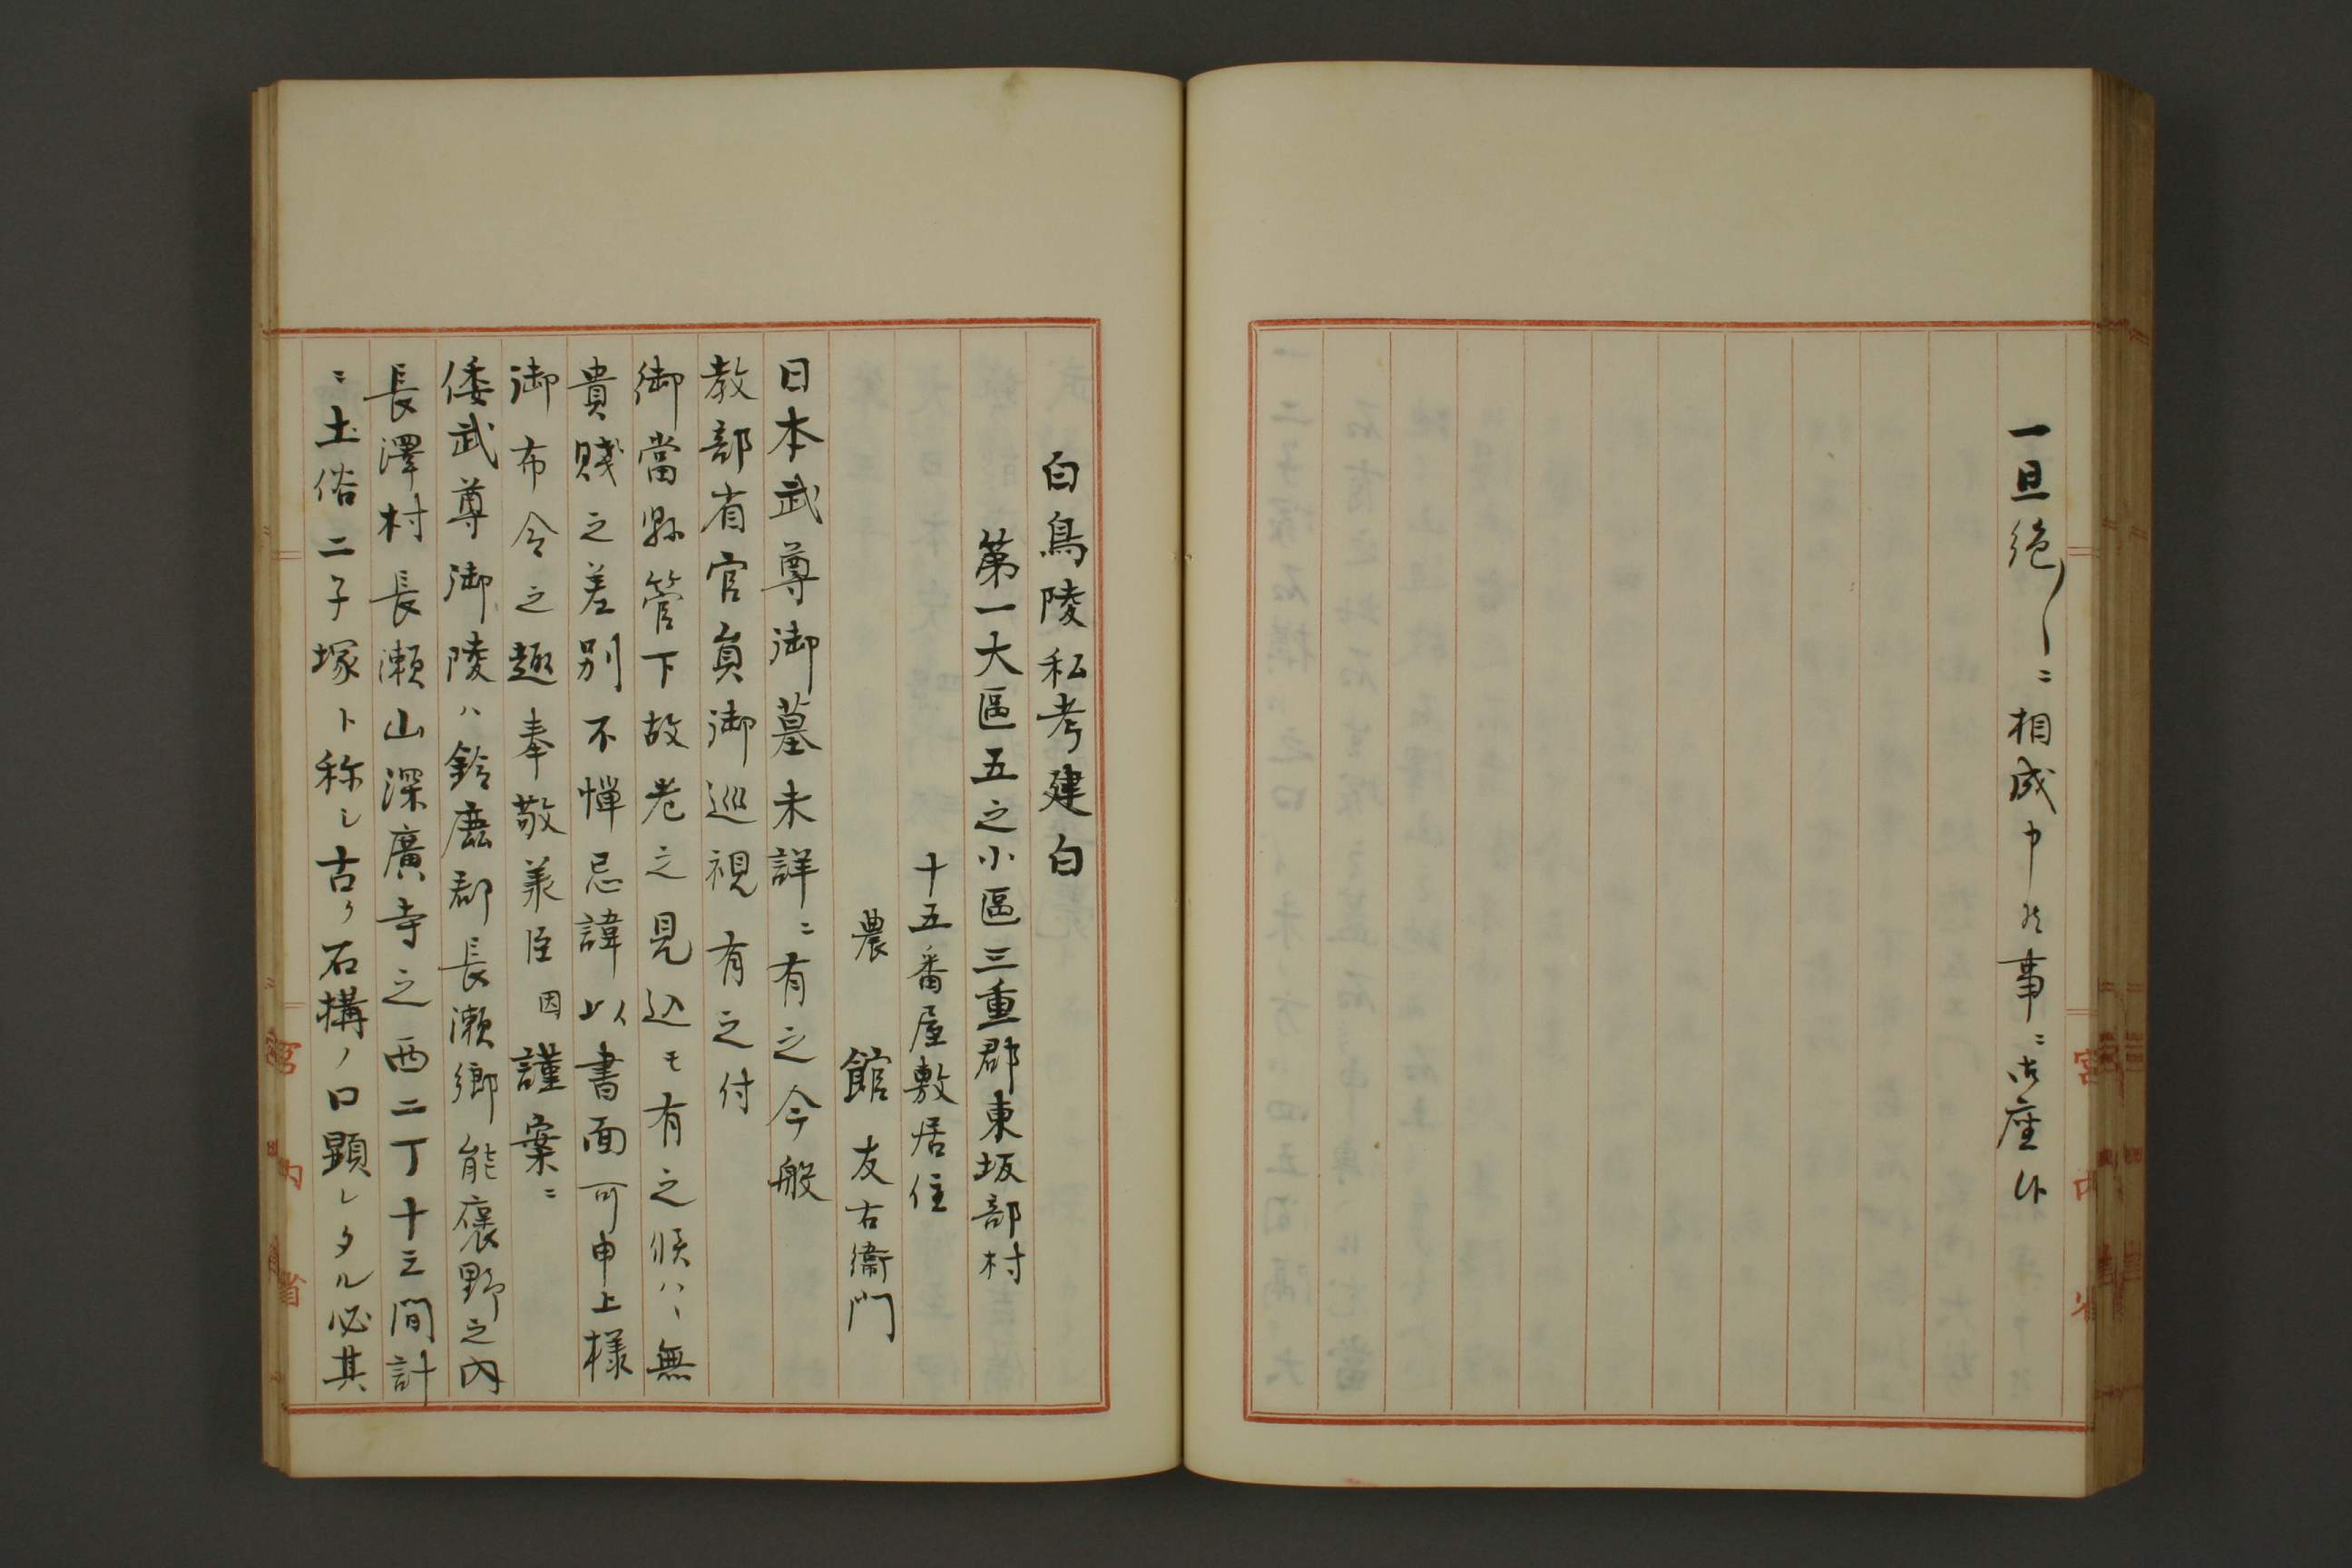 一旦絶〳〵ニ相成申候事ニ御座候
宮内省
白鳥陵私考建白
第一大區五之小區三重郡東坂部村
十五番屋敷居住
農　館　友右衞門
日本武尊御墓未詳ニ有之今般
教部省官員御巡視有之付
御當縣管下故老之見込モ有之候ハヽ無
貴賤之差別不憚忌諱以書面可申上様
御布令之趣奉敬羕臣因謹案ニ
倭武尊御陵ハ鈴鹿郡長瀬郷能褒野之内
長澤村長瀬山深廣寺之西二丁十三間計
ニ土俗二子塚ト称シ古ク石構ノ口顕レタル必其
宮内省